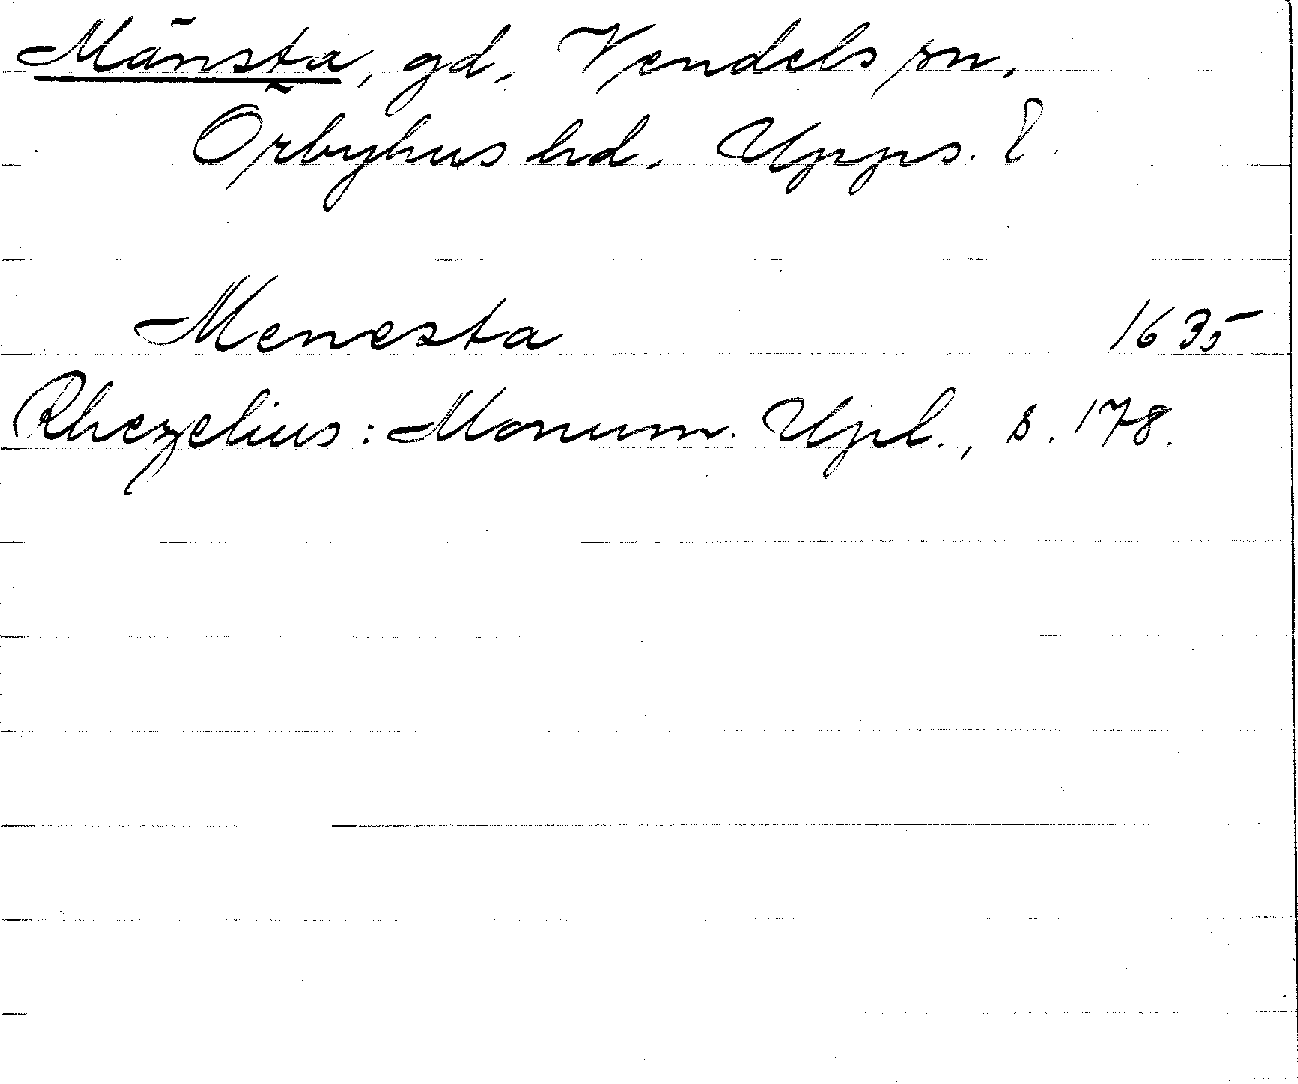 Mänsta, gd, Vendels sn.
Örbyhus hd. Upps. l.
Menesta 1635
Rhezelius: Monum. Upl., s. 178.